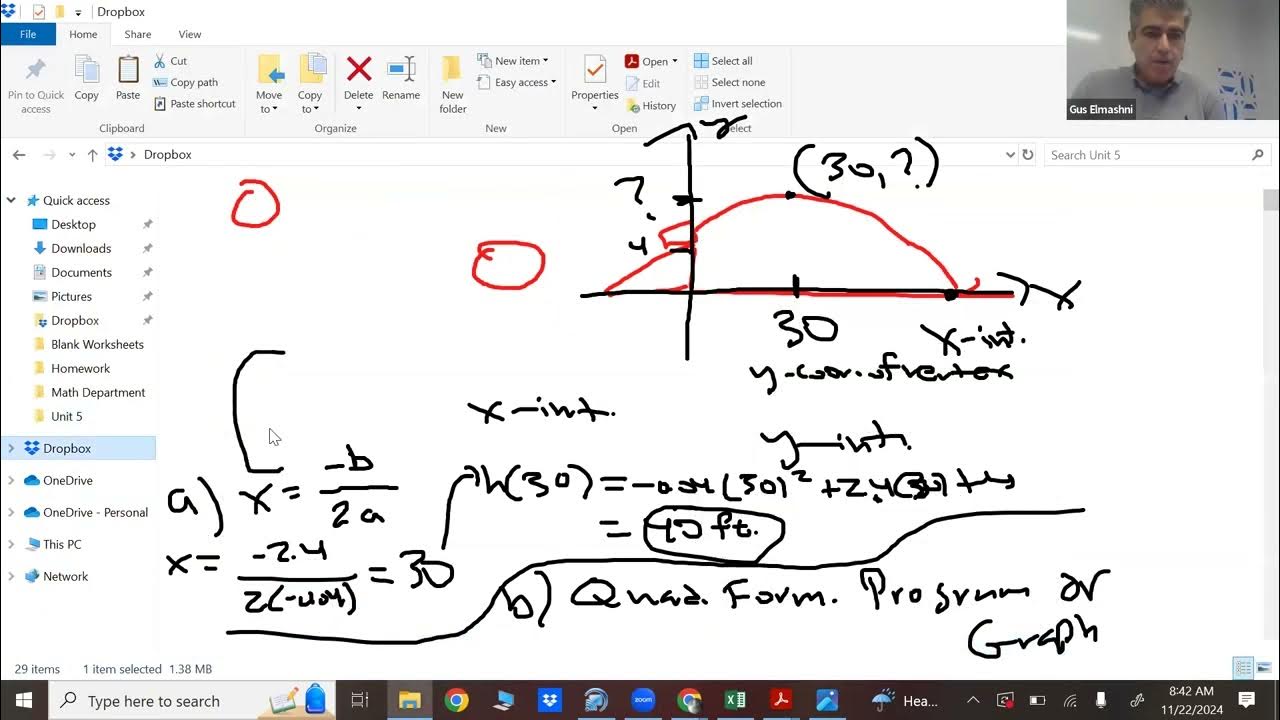 Dropbox
File Home Share View
Pin to Quick access
Copy
Paste
Cut
Copy path
Paste shortcut
Clipboard
Move to
Copy to
Delete
Rename
Organize
New folder
New item
Easy access
New
Properties
Open
Edit
History
Open
Select all
Select none
Invert selection
Select
Gus Elmashni
Dropbox
Search Unit 5
Quick access
Desktop
Downloads
Documents
Pictures
Dropbox
Blank Worksheets
Homework
Math Department
Unit 5
Dropbox
OneDrive
OneDrive - Personal
This PC
Network
y
(30,?)
?
4
x
30
x-int.
y-coor. of vertex
x-int.
y-int.
a) x = -b / 2a
h(30) = -0.04(30)² + 2.4(30) + 4
= 40 ft.
x = -2.4 / 2(-0.04) = 30
b) Quad. Form. Program or
Graph
29 items 1 item selected 1.38 MB
Type here to search
zoom
Hea...
8:42 AM
11/22/2024